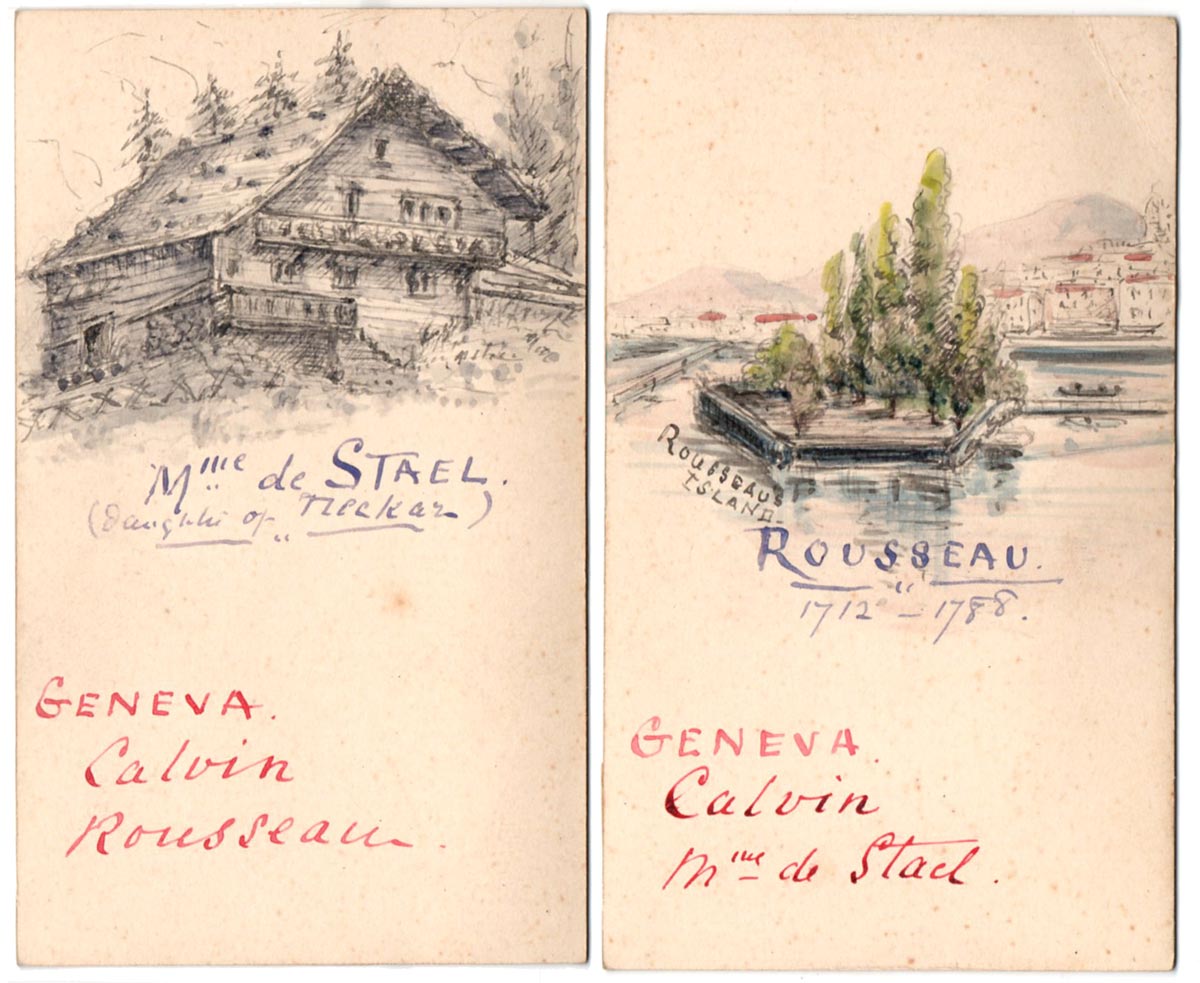 Mme de STAEL.
(Daughter of Neckar)
GENEVA.
Calvin
Rousseau.
ROUSSEAU'S
ISLAND.
ROUSSEAU.
1712 - 1788.
GENEVA.
Calvin
Mme de Stael.